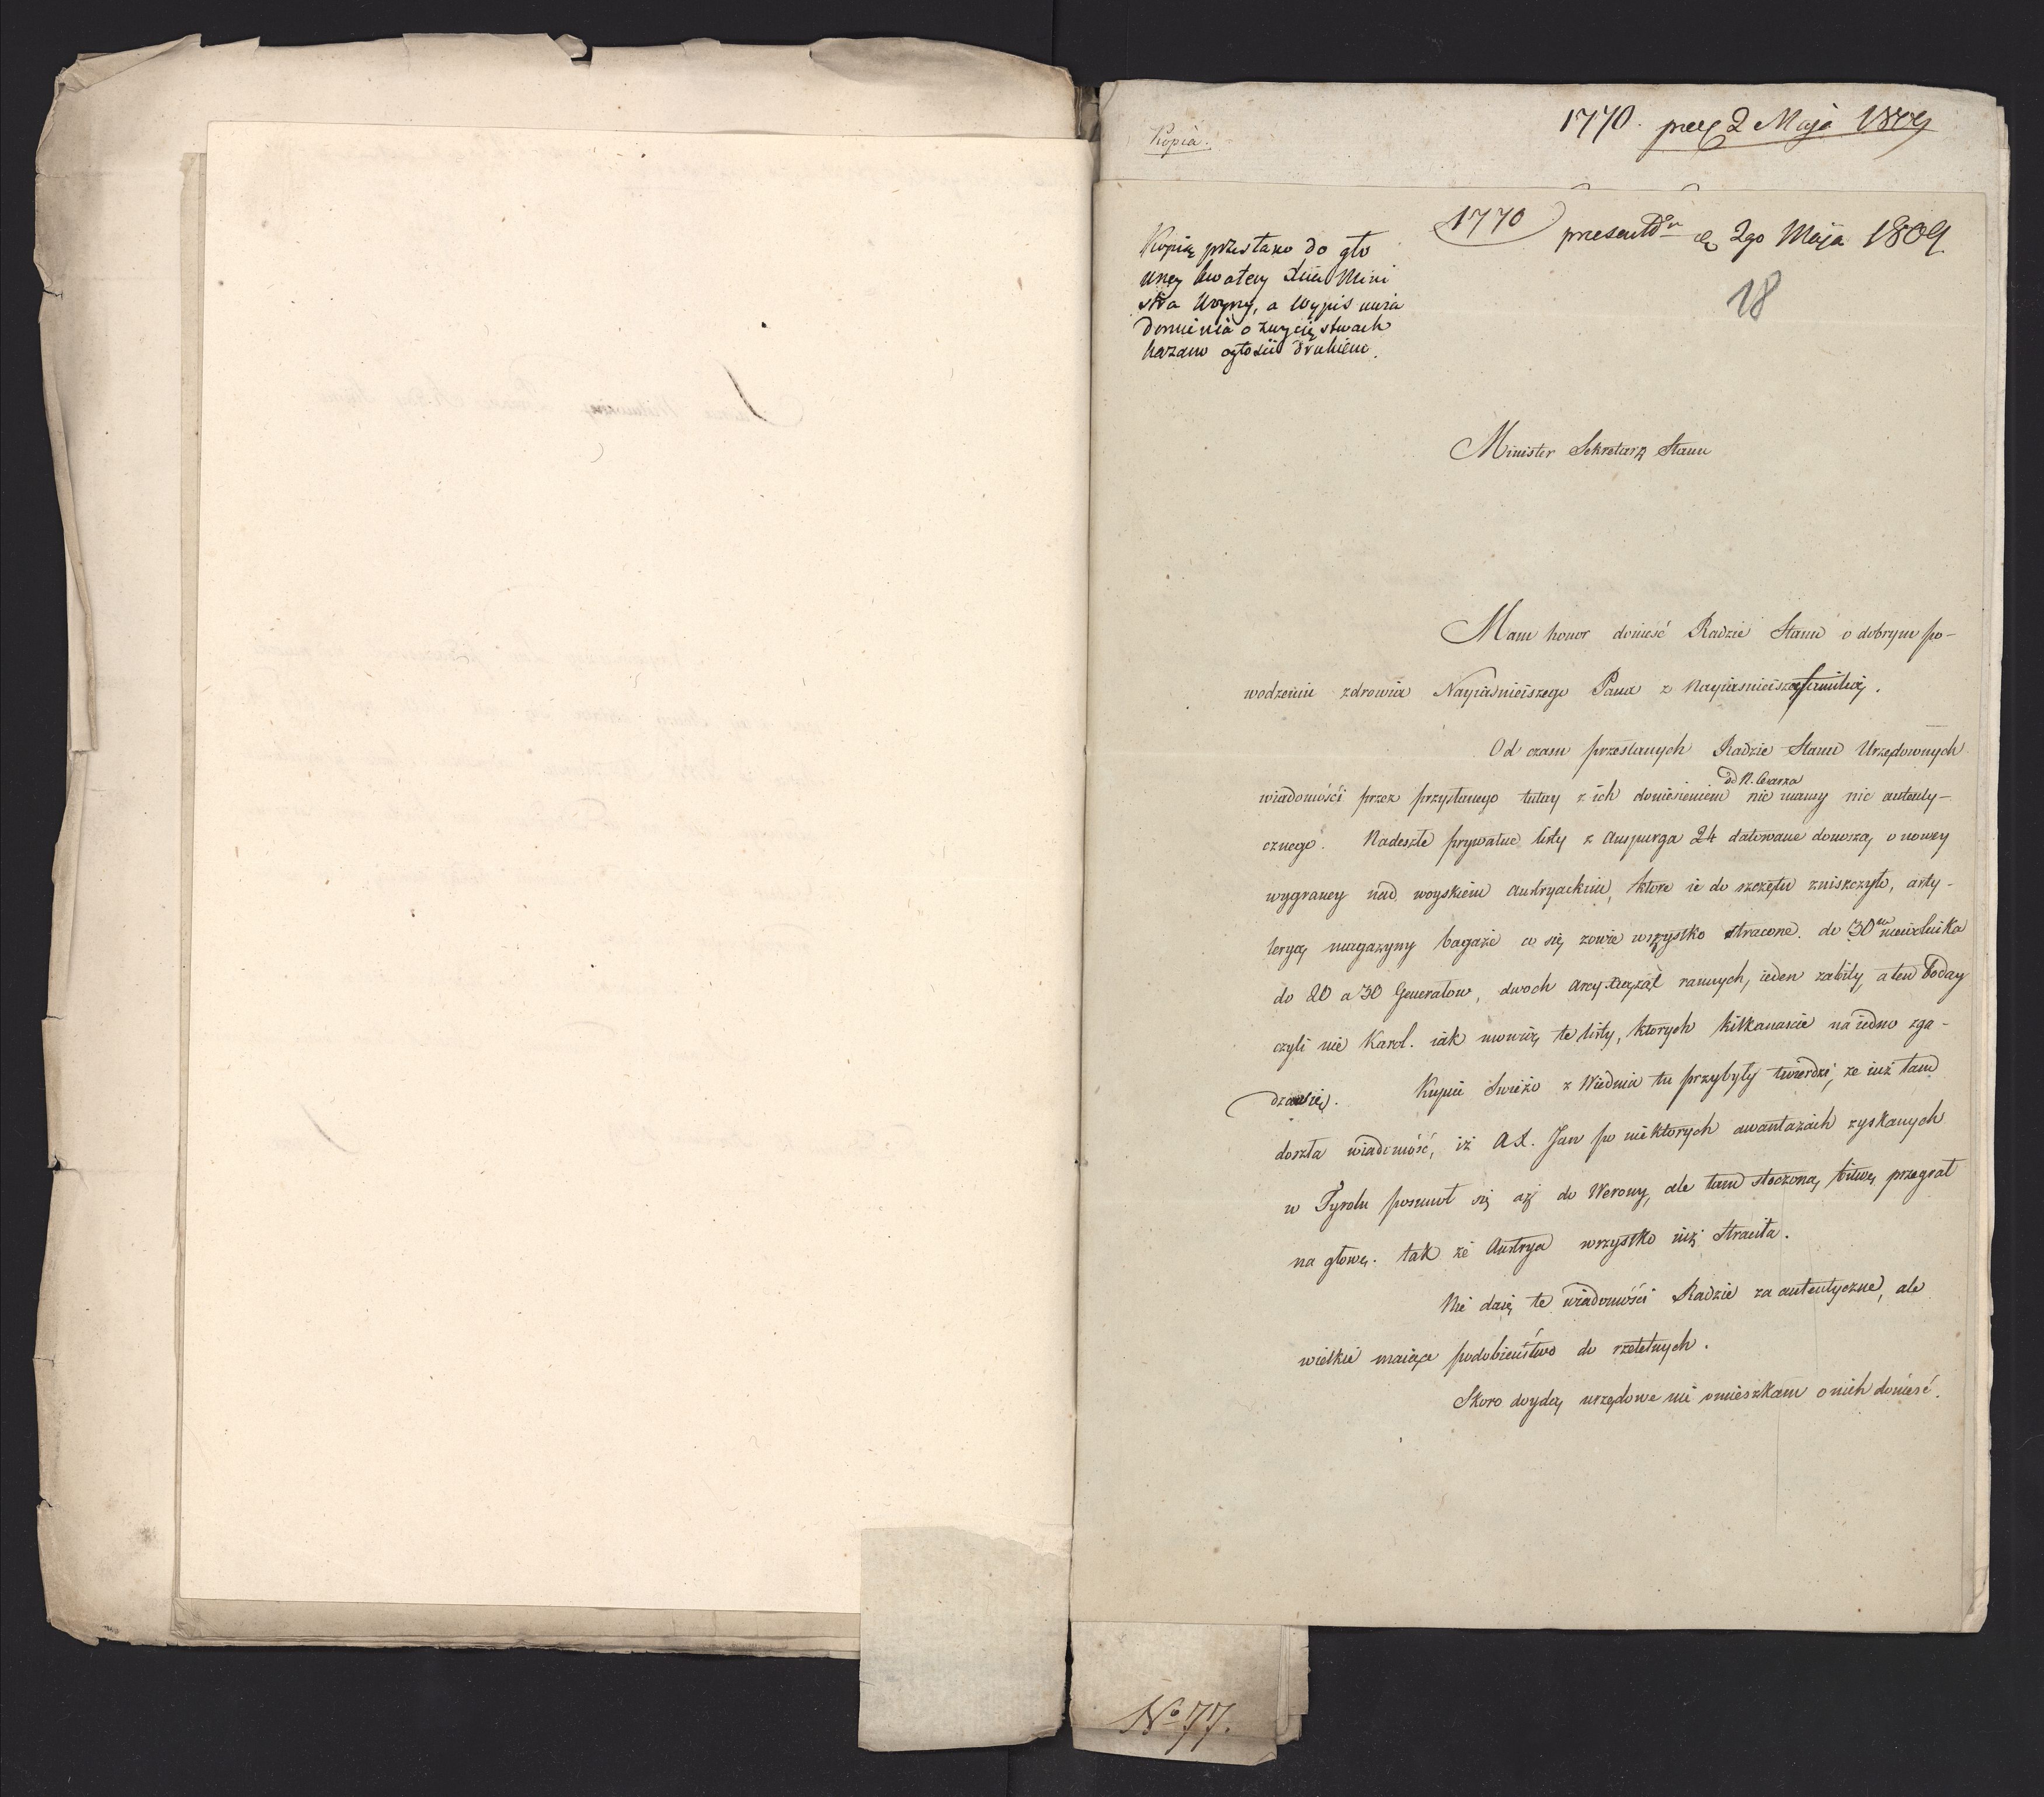 Kopia.
1770. prez 2 Maja 1809
1770 presentdn d. 2go Maja 1809
18
Kopię przesłano do głó
wney kwatery dnia Mini
stra Woyny, a Wypis uwia
domienia o zwycięstwach
kazano ogłosić drukiem.
Minister Sekretarz Stanu
Mam honor donieść Radzie Stanu o dobrym po-
wodzeniu zdrowia Nayiaśnieiszego Pana z Nayiaśnieiszą familią.
Od czasu przesłanych Radzie Stanu Urzędownych
od N. Cesarza
wiadomości przez przysłanego tutay z ich doniesieniem nie mamy nic autenty-
cznego. Nadeszłe prywatne listy z Auspurga 24 datowane donoszą o nowey
wygraney nad woyskiem Austryackim, ktore ie do szczętu zniszczyło, arty-
leryą magazyny bagaże co się zowie wszystko stracone. do 30m niewolnika
do 20 a 30 Generałow, dwoch Arcy Xiążąt rannych, ieden zabity, a ten boday
czyli nie Karol. iak mowią te listy, ktorych kilkanaście na iedno zga-
dza się. Kupiec świeżo z Wiednia tu przybyły twierdzi, że iuż tam
doszła wiadomość, iż A X. Jan po niektorych awantażach zyskanych
w Tyrolu posunoł się aż do Werony, ale tam stoczoną bitwę przegrał
na głowę. tak że Austrya wszystko iuż straciła.
Nie daię te wiadomości Radzie za autentyczne, ale
wielkie maiące podobieństwo do rzetelnych.
Skoro doydą urzędowe nie omieszkam o nich donieść.
No 77.